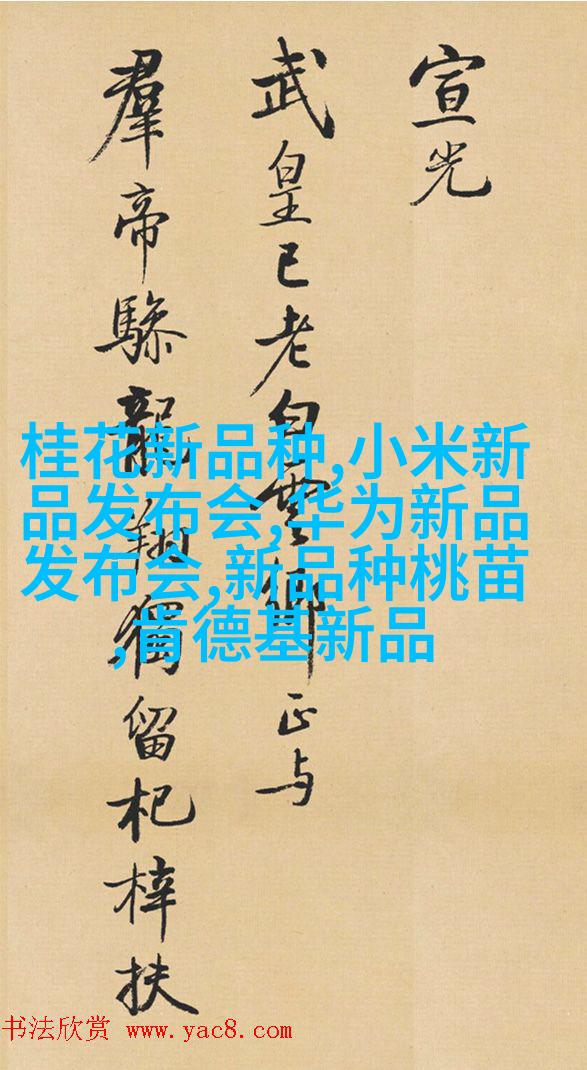 宣光
武皇已老白雲鄉正与
羣帝驂龍翔獨留杞梓扶
桂花新品种,小米新
品发布会,华为新品
发布会,新品种桃苗
,肯德基新品
书法欣赏 www.yac8.com